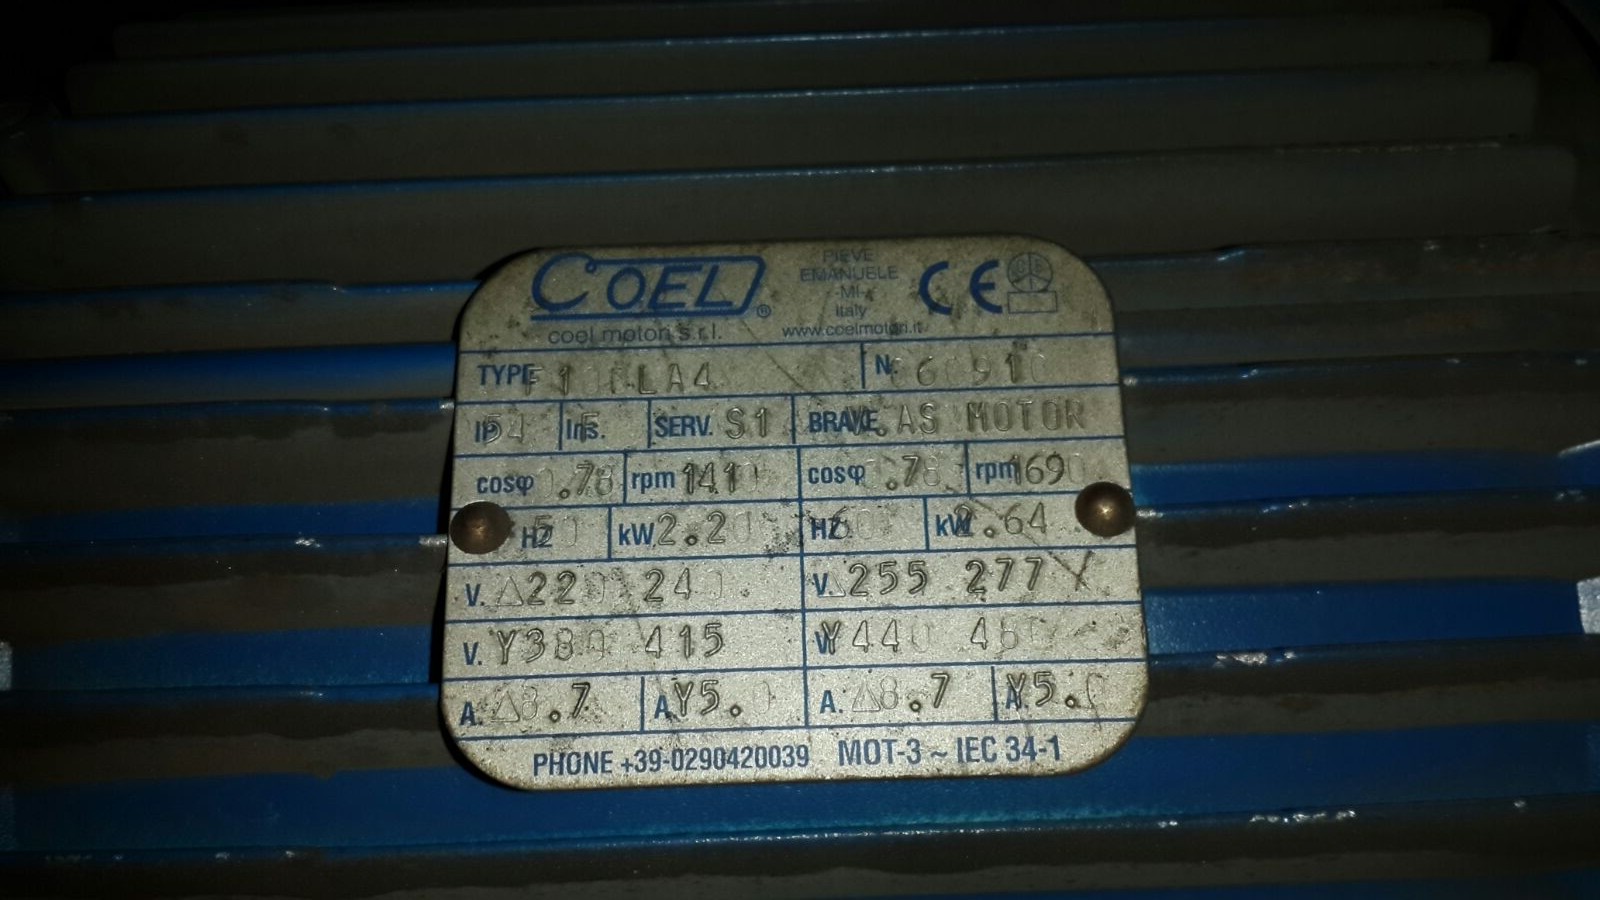 COEL ®
coel motori s.r.l.
PIEVE
EMANUELE
-MI-
Italy
www.coelmotori.it
CE
TYPE F100LA4 N.
IP 54 Ins. F SERV. S1 BRAKE V. AS MOTOR
cosφ 0.78 rpm 1410 cosφ 0.78 rpm 1690
HZ 50 kW 2.20 HZ 60 kW 2.64
V. △220 240 V. △255 277
V. Y380 415 V. Y440 480
A. △8.7 A. Y5.0 A. △8.7 A. Y5.0
PHONE +39-0290420039 MOT-3 ~ IEC 34-1